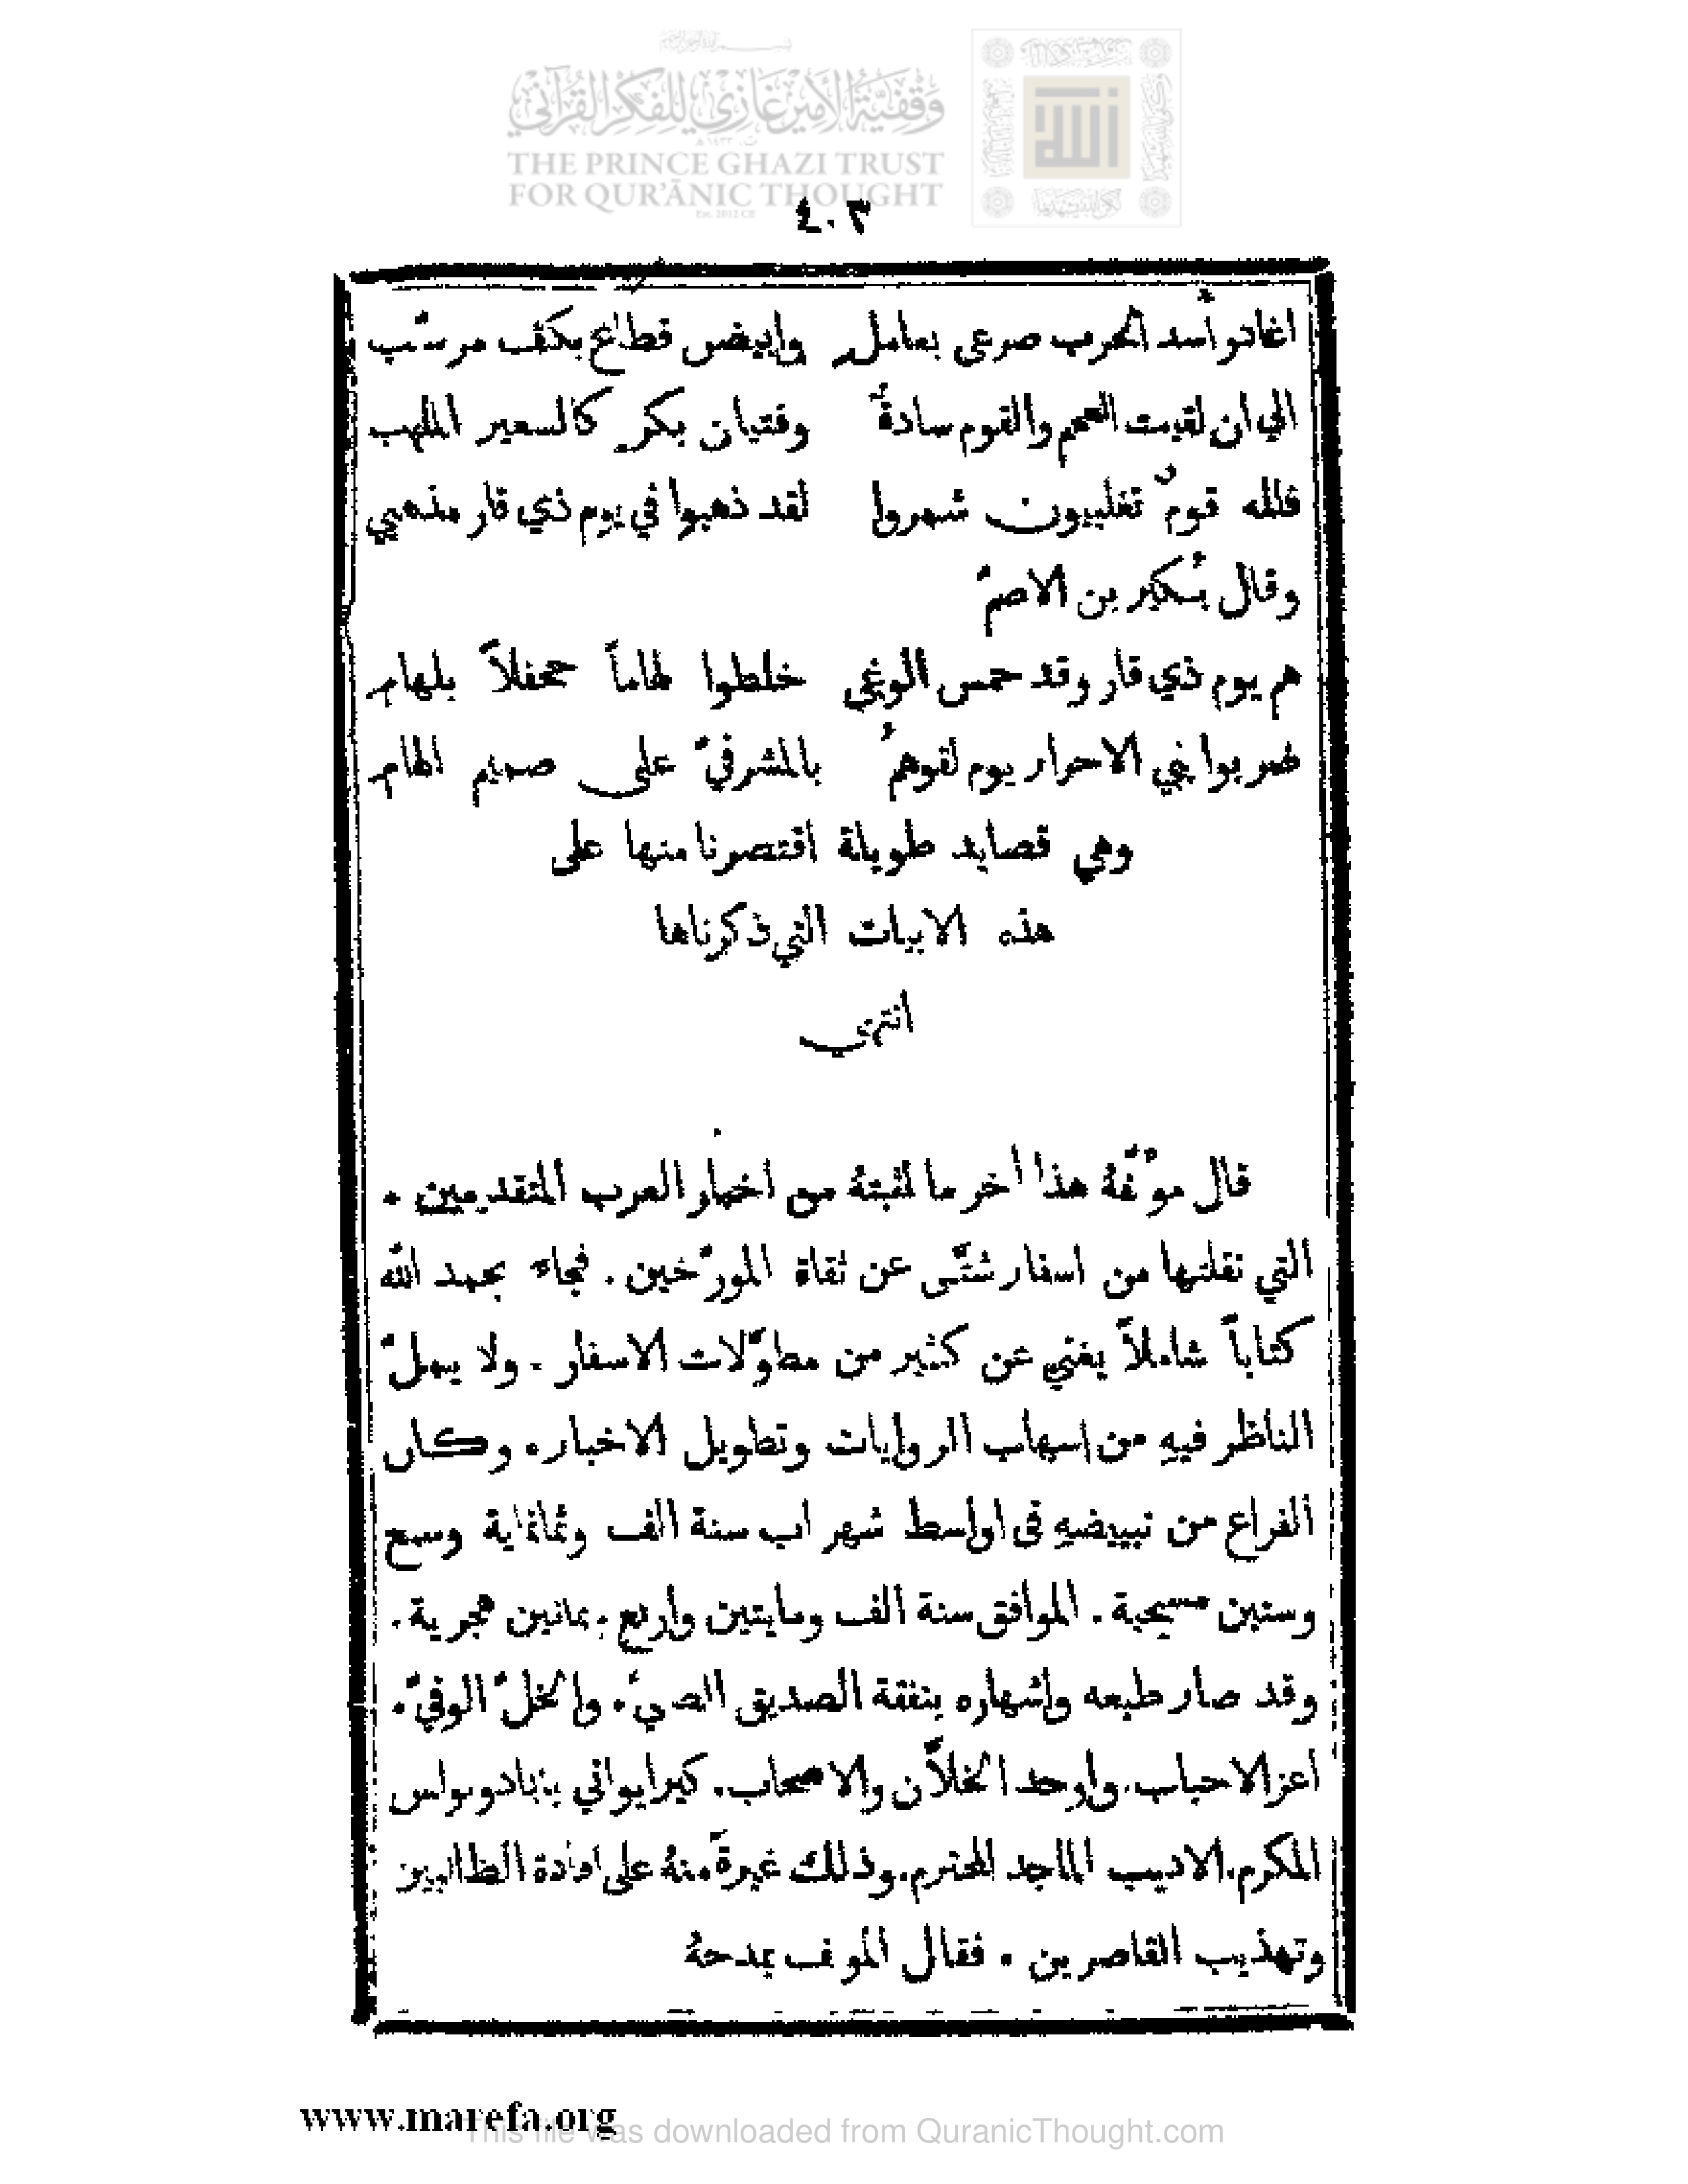 وقفية الأمير غازي للفكر القرآني
THE PRINCE GHAZI TRUST
FOR QUR'ĀNIC THOUGHT
Est. 2012 CE
٤٠٣
اغادر أسد الحرب صرعى بعامل وابيض قطاع بكف مرسّب
الي ان لقيت العجم والقوم سادةٌ وفتيان بكر كالسعير الملهب
فلله قومٌ تغلبيون شهروا لقد ذهبوا في يوم ذي قار مذهبي
وقال بُكير بن الاصمّ
هم يوم ذي قار وقد حمس الوغى خلطوا لهاماً جحفلاً بلهام
ضربوا بني الاحرار يوم لقوهمُ بالمشرفيّ على صميم الهام
وهي قصايد طويلة اقتصرنا منها على
هذه الابيات التي ذكرناها
انتهى
قال مؤلّفهُ هذا أخر ما نثبتهُ من اخبار العرب المتقدمين .
التي نقلتها من اسفار شتّى عن ثقاة المورّخين . فجاءَ بحمد الله
كتاباً شاملاً يغني عن كثير من مطوّلات الاسفار . ولا يملّ
الناظر فيهِ من اسهاب الروايات وتطويل الاخبار . وكان
الفراغ من تبييضهِ في اواسط شهر اب سنة الف وثمانماية وسبع
وستين مسيحية . الموافق سنة الف ومايتين واربع وثمانين هجرية .
وقد صار طبعه واشهاره بنفقة الصديق الصفيّ . والخلّ الوفيّ .
اعز الاحباب . واوحد الخلاّن والاصحاب . كيرايواني بابادوبولس
المكرم . الاديب الماجد المحترم . وذلك غيرةً منهُ على افادة الطالبين
وتهذيب القاصرين . فقال المولف بمدحهُ
www.marefa.org
This file was downloaded from QuranicThought.com